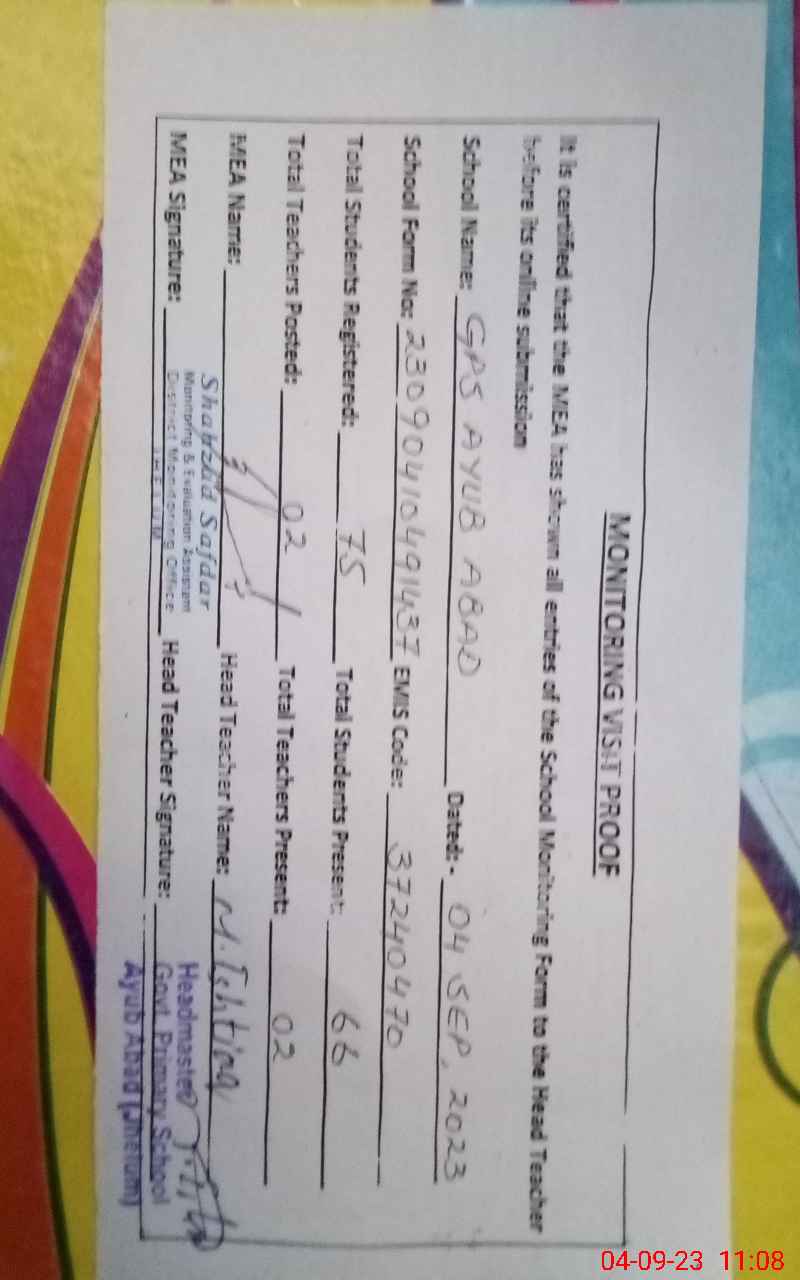 MONITORING VISIT PROOF
It is certified that the MEA has shown all entries of the School Monitoring Form to the Head Teacher
before its online submission
School Name: GPS AYUB ABAD Dated:- 04 SEP, 2023
School Form No: 23090410491437 EMIS Code: 37240470
Total Students Registered: 75 Total Students Present: 66
Total Teachers Posted: 02 Total Teachers Present: 02
MEA Name: Head Teacher Name: M. Ishtiaq
Shahzad Safdar
Monitoring & Evaluation Assistant
District Monitoring Office
JHELUM
MEA Signature: Head Teacher Signature:
Headmaster
Govt. Primary School
Ayub Abad (Jhelum)
04-09-23 11:08